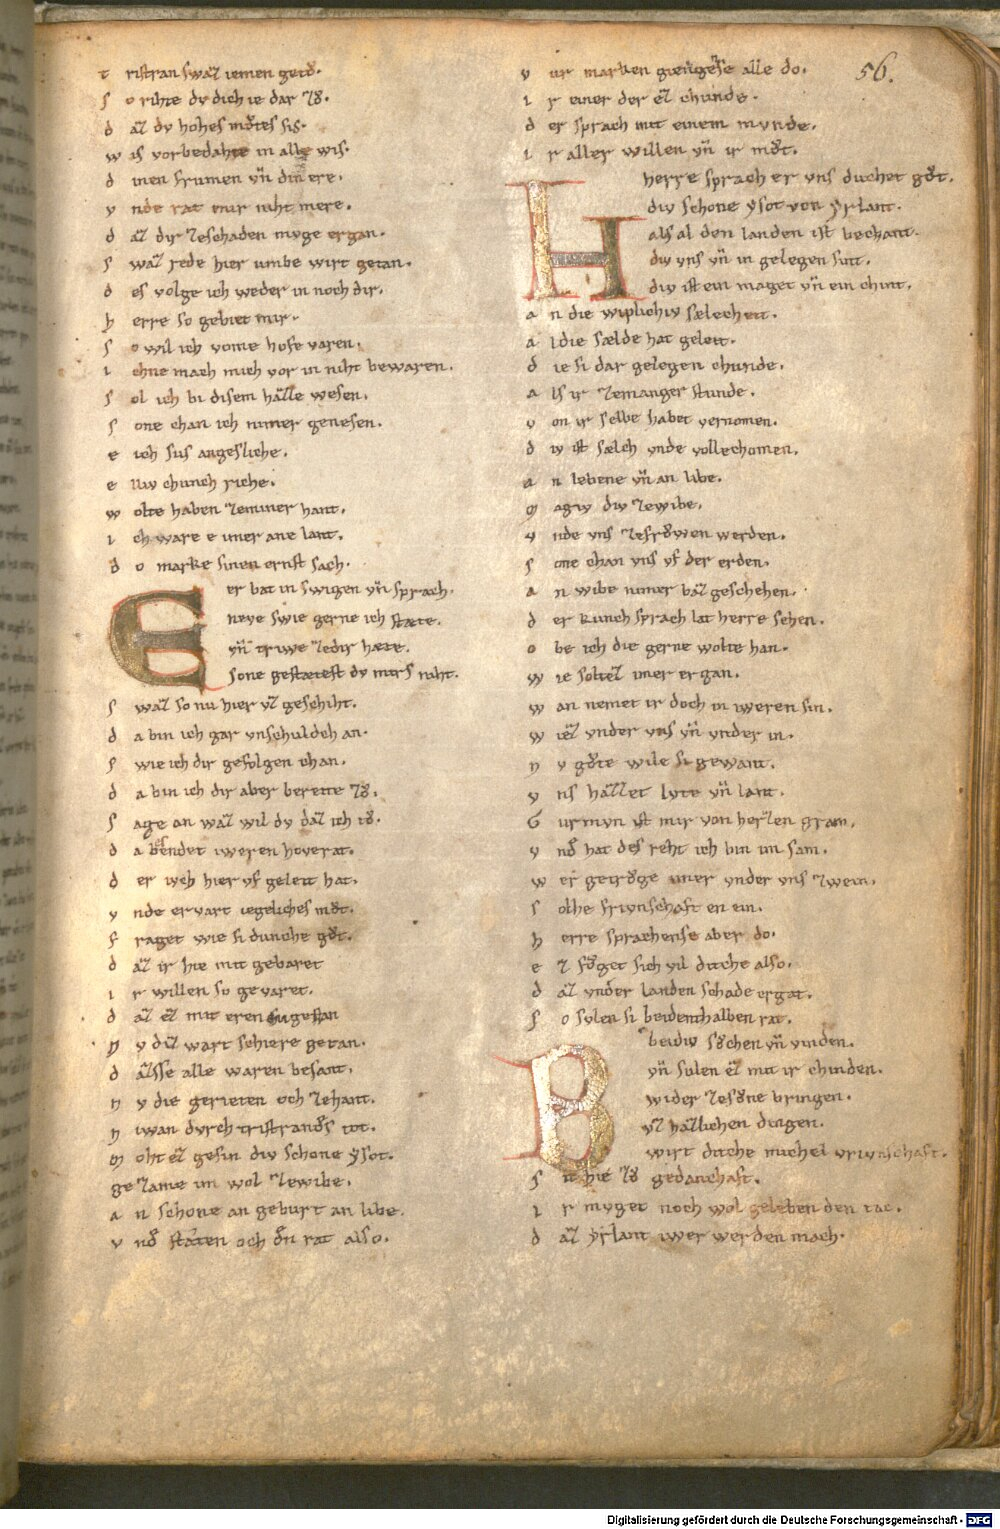 t ristran swaz iemen getů.
s o rihte dv dich ie dar zů.
d az dv hohes můtes sis.
w is vorbedahte in alle wis.
d inen frumen vñ din ere.
v nde rat mir niht mere.
d az dir ze schaden mvge ergan.
s waz rede hier umbe wirt getan.
d es volge ich weder in noch dir.
h erre so gebiet mir.
s o wil ich vome hofe varen.
i chne mach mich vor in niht bewaren.
s ol ich bi disem hazze wesen.
s one chan ich nimer genesen.
e ich sus angesliche.
e lliv chunchriche.
w olte haben zeminer hant.
i ch ware e imer ane lant.
d o marke sinen ernst sach.
E er bat in swigen vñ sprach.
neve swie gerne ich stæte.
vñ triwe ze dir hæte.
sone gestatest dv mirs niht.
s waz so nu hier vz geschiht.
d a bin ich gar vnschuldch an.
s wie ich dir gefolgen chan.
d a bin ich dir aber bereite zů.
s age an waz wil dv daz ich tů.
d a besendet iweren hoverat.
d er iveh hier vf geleit hat.
v nde ervart iegeliches můt.
f raget wie si dunche gůt.
d az ir hie mit gebaret
i r willen so gevaret.
d az ez mit eren si getan
n v diz wart schiere getan.
d azsse alle waren besant.
n v die gerieten och zehant.
n iwan dvrch tristrandes tot.
m oht ez gesin div schone ysot.
ge zame im wol zewibe.
a n schone an geburt an libe.
v nd staten och den rat also.
v ur marken giengense alle do.
i r einer der ez chunde.
d er sprach mit einem mvnde.
i r aller willen vñ ir můt.
H herre sprach er vns duchet gůt.
div schone ysot von yrlant.
als al den landen ist bechant.
div vns vñ in gelegen sint.
div ist ein maget vñ ein chint.
a n die wiplichiv sælecheit.
a l die sælde hat geleit.
d ie si dar gelegen chunde.
a ls ir zemanger stunde.
v on ir selbe habet vernomen.
d iv ist sælch vnde vollechomen.
a n lebene vñ an libe.
m ag iv div zewibe.
v nde vns zefrowen werden.
s one chan vns vf der erden.
a n wibe nimer baz geschehen.
d er kunch sprach lat herre sehen.
o be ich die gerne wolte han.
w ie soltez imer ergan.
w an nemet ir doch in iweren sin.
w iez vnder vns vñ vnder in.
n v gůte wile si gewant.
v ns hazzet lvte vñ lant.
G urmvn ist mir von herzen gram.
v nd hat des reht ich bin im sam.
w er getrůge imer vnder vns zwein.
s olhe frivnschaft en ein.
h erre sprachense aber do.
e z fůget sich vil dicche also.
d az vnder landen schade ergat.
s o svlen si beidenthalben rat.
B beidiv sůchen vñ vinden.
vñ sulen ez mit ir chinden.
wider zesůne bringen.
vz hazlichen dingen.
wirt dicche michel vrivnschaft.
s it hie zů gedanchaft.
i r mvget noch wol geleben den tac.
d az yrlant iwer werden mach.
56.
Digitalisierung gefördert durch die Deutsche Forschungsgemeinschaft - DFG